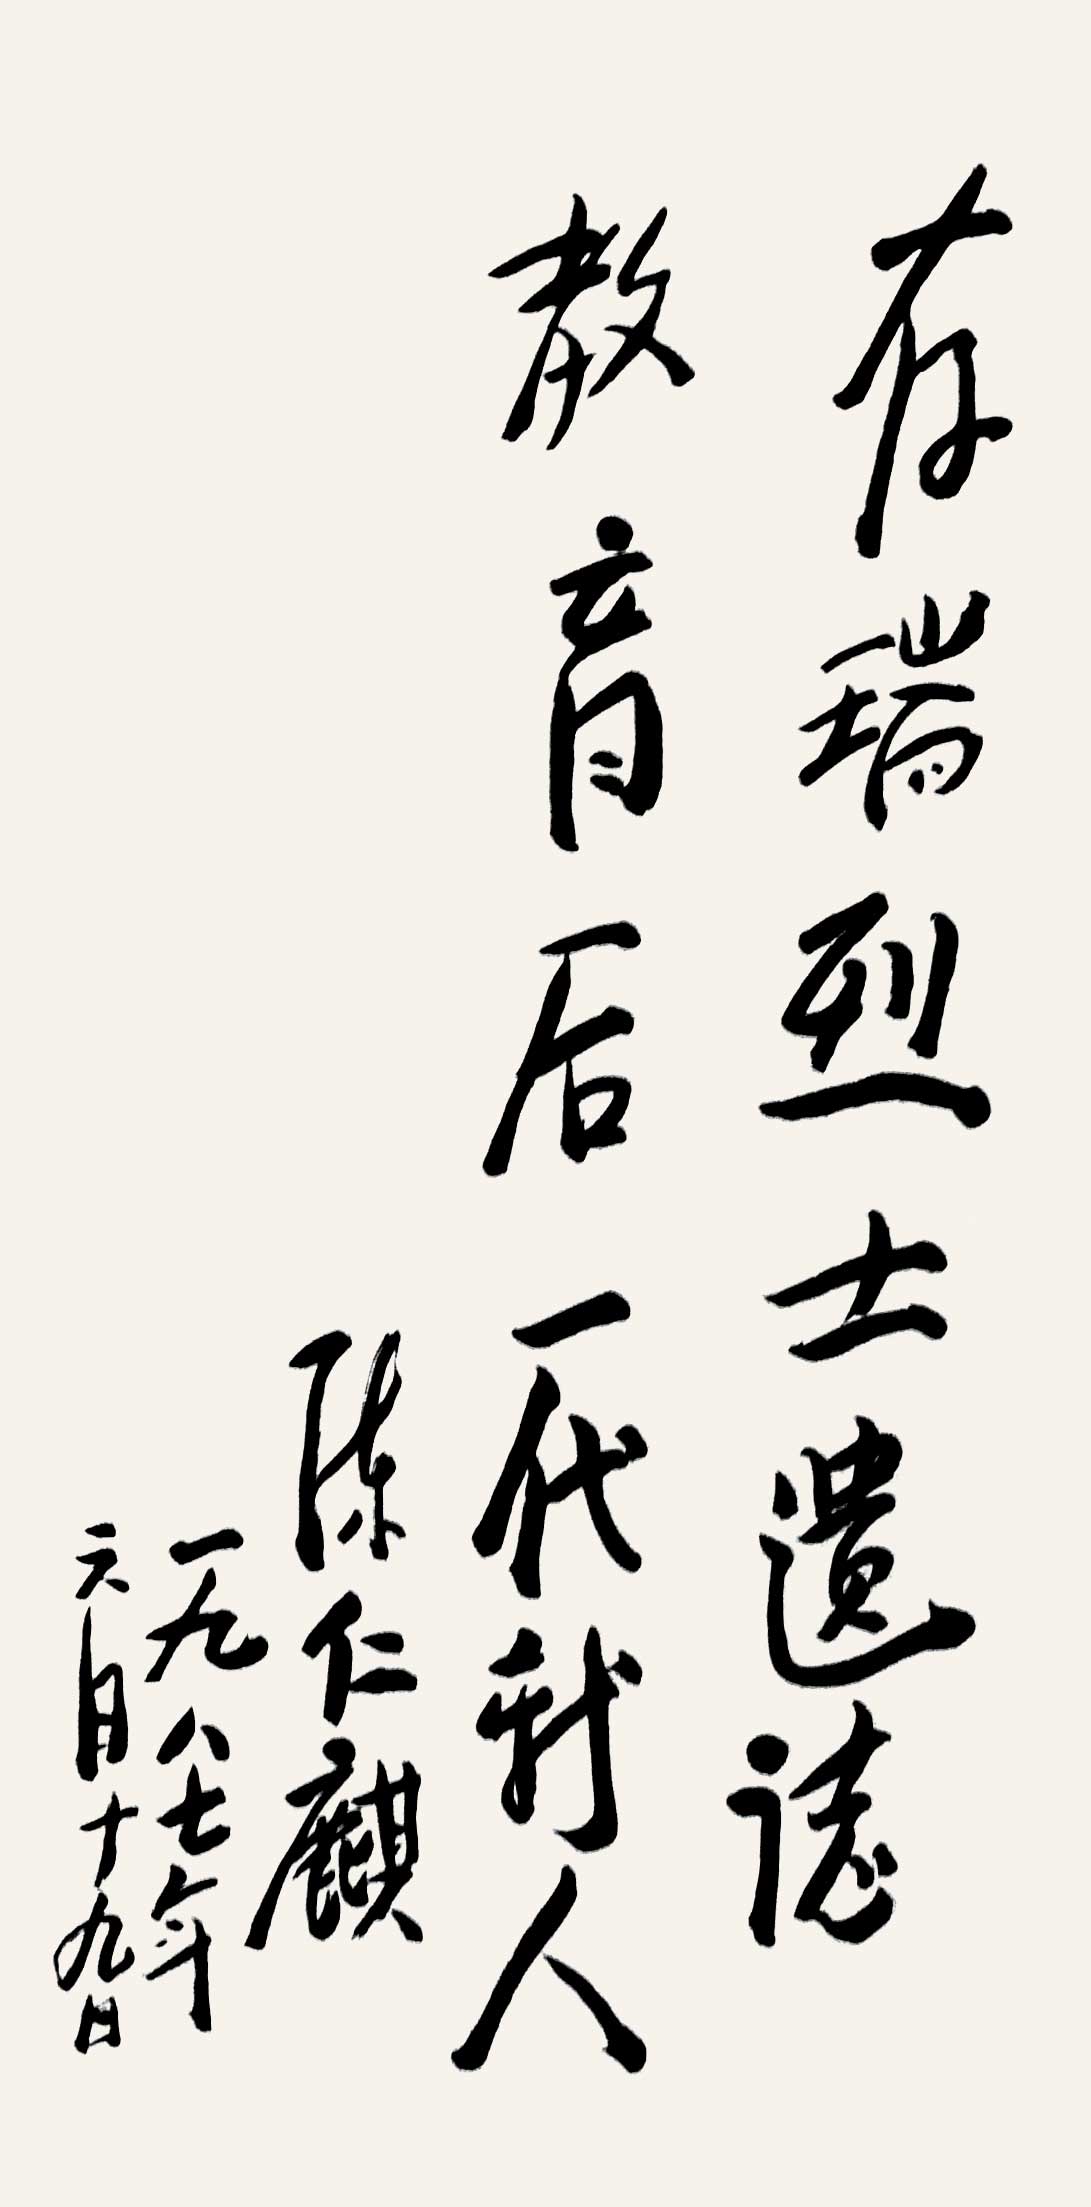 存瑞烈士遗志
教育后一代新人
陈仁麒
一九八七年
六月十九日